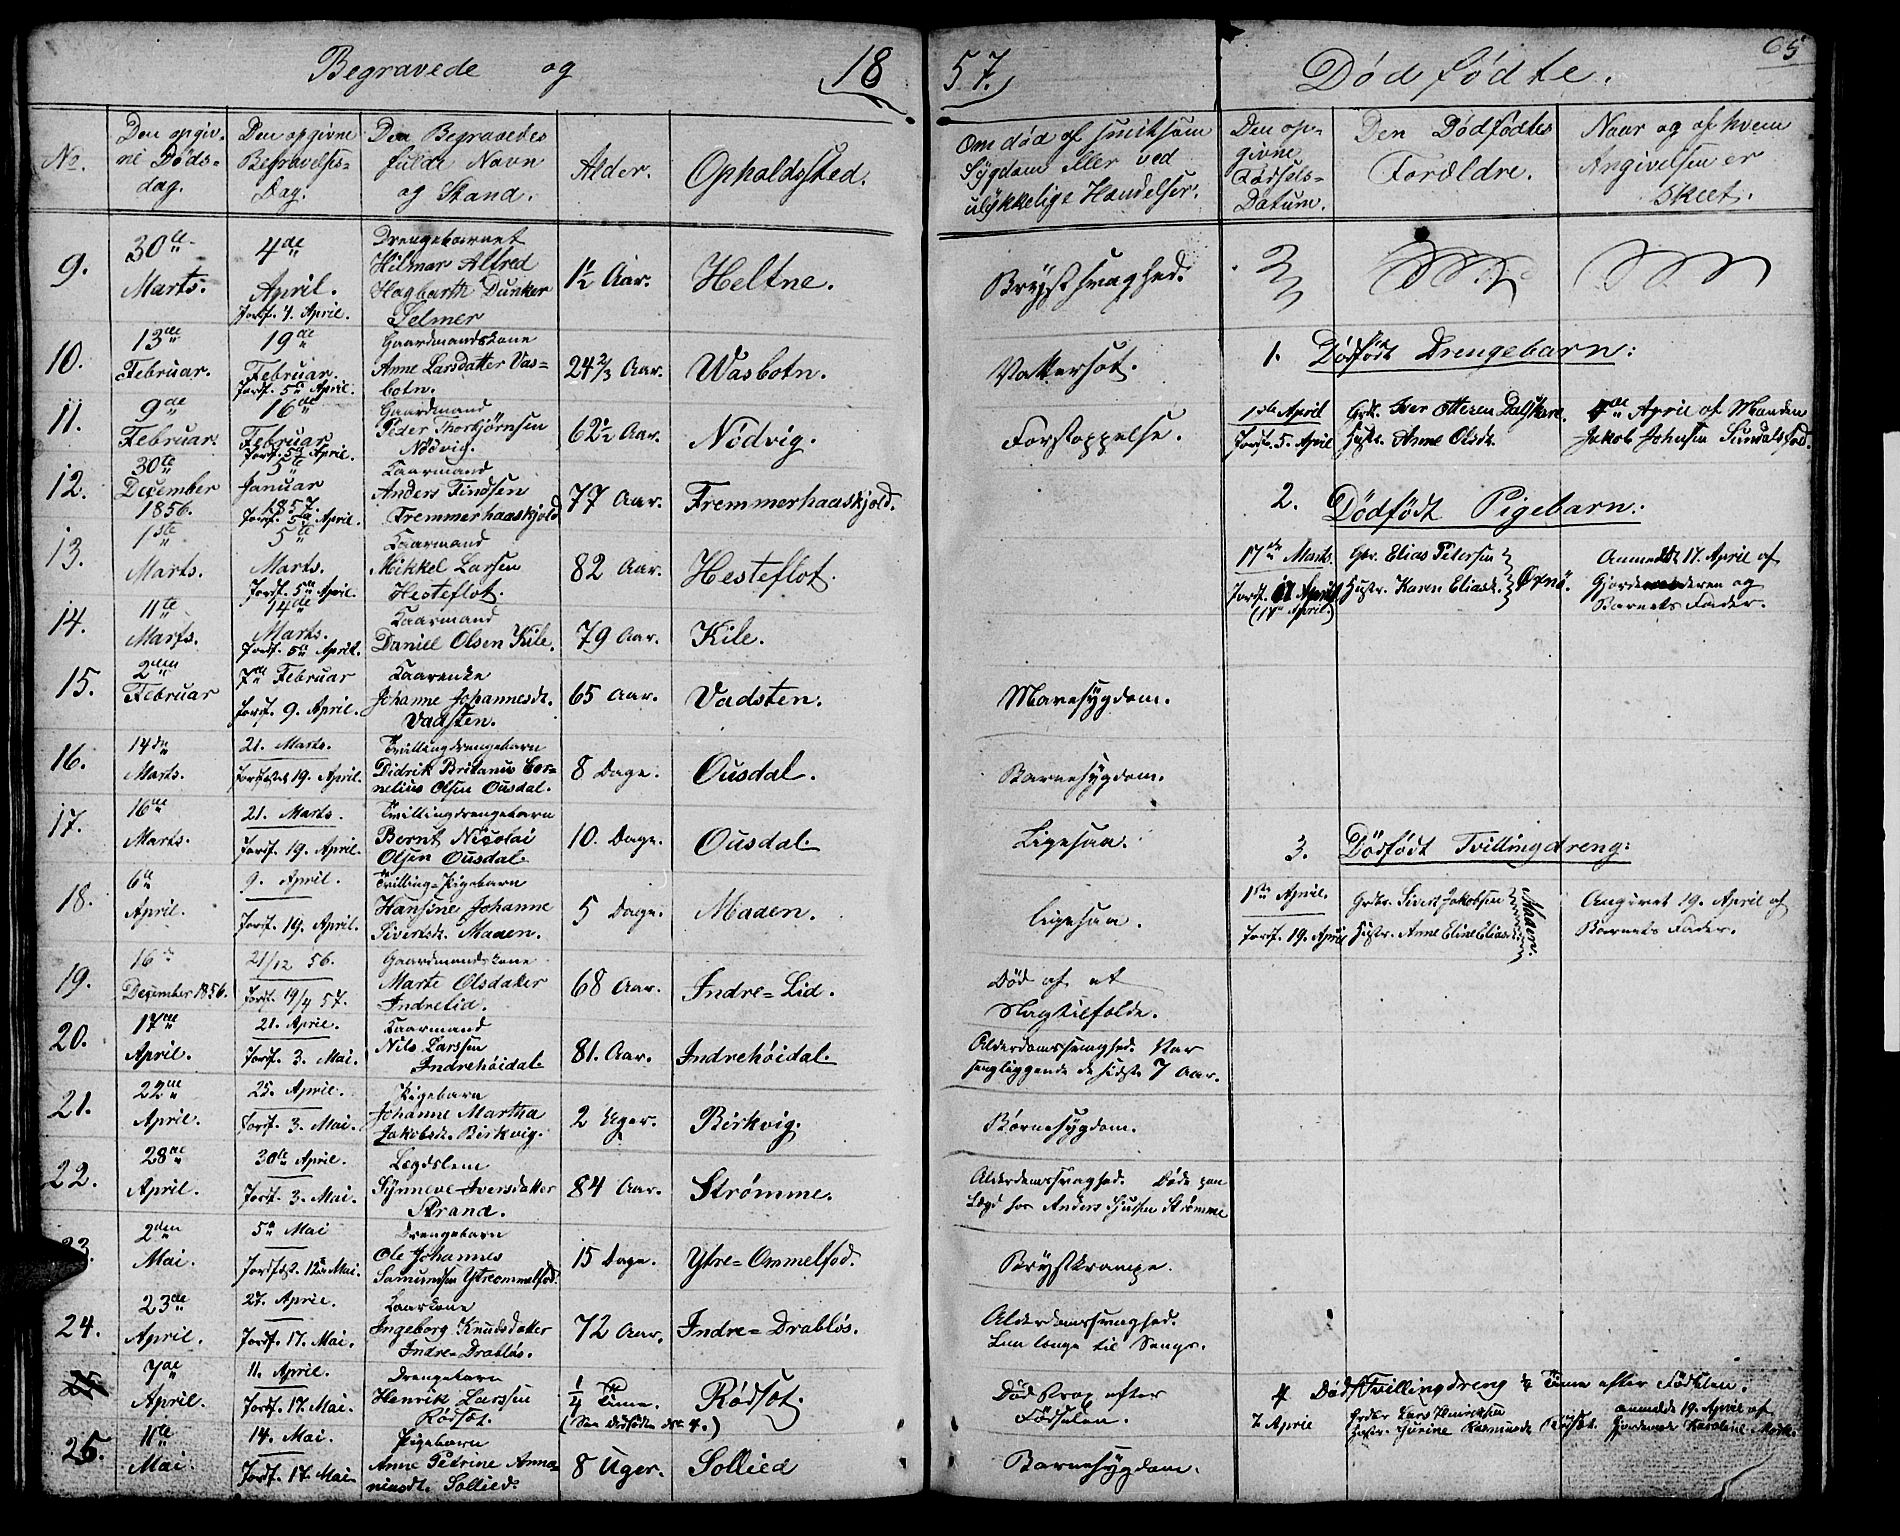 Begravede og 18
57. Dødfødte. 65
No.
Den opgivne Dødsdag.
Den opgivne Begravelses-Dag.
Den Begravedes fulde Navn og Stand.
Alder.
Opholdssted.
Om død af smitsom Sygdom eller ved ulykkelige Hændelser.
Den opgivne Fødsels-Datum.
Den Dødfødtes Forældre.
Naar og af hvem Angivelsen er skeet.
9. 30te Marts. 4de April. Jordf. 4. April. Drengebarnet Hilmar Alfred Hagbarth Dunker Selmer 1½ Aar. Heltne. Brystsvaghed.
10. 13de Februar. 19de Februar. Jordf. 5te April. Gaardmandskone Anne Larsdatter Vasbotn. 24 2/3 Aar. Wasbotn. Vattersot.
11. 9de Februar. 16de Februar Jordf. 5te April. Gaardmand Peder Thorbjørnsen Nödvig. 62½ Aar. Nödvig. Forstoppelse.
12. 30te December 1856. 5te Januar 1857. Jordf. 5te April. Kaarmand Anders Findsen Fremmerhaaskjold 77 Aar. Fremmerhaaskjold.
13. 1ste Marts. 5te Marts. Jordf. 5te April. Kaarmand Mikkel Larsen Hesteflot. 82 Aar. Hesteflot.
14. 11te Marts. 14de Marts. Jordf. 5te April. Kaarmand Daniel Olsen Kile. 79 Aar. Kile.
15. 2den Februar 7de Februar Jordf. 9. April. Kaarenke Johanne Johannesdt. Vadsten. 65 Aar. Vadsten. Mavesygdom.
16. 14de Marts. 21. Marts. Jordfæstet 19. April. Tvillingdrengebarn Didrik Britanus Cornelius Olsen Ousdal. 8 Dage. Ousdal. Barnesygdom.
17. 16de Marts. 21. Marts. Jordf. 19. April. Tvillingdrengebarn Bernt Nicolai Olsen Ousdal. 10. Dage. Ousdal. Ligesaa.
18. 6te April. 9. April. Jordf. 19. April. Tvilling-Pigebarn Hansine Johanne Sivertsdt. Maden. 5 Dage. Maden. Ligesaa.
19. 16de December 1856. 21/12 56. Jordf. 19/4 57. Gaardmandskone Marte Olsdatter Indrelid. 68 Aar. Indre=Lid. Død af et Slagtilfælde.
20. 17de April. 21. April. Jordf. 3. Mai. Kaarmand Nils Larssen Indrehöidal. 81. Aar. Indrehöidal. Alderdomssvaghed. Var sengliggende de sidste 7 Aar.
21. 22de April. 25. April. Jordf. 3. Mai. Pigebarn Johanne Martha Jakobsdt. Birkvig. 2 Uger. Birkvig. Børnesygdom.
22. 28de April. 30te April. Jordf. 3. Mai. Lægdslem Synneve Iversdatter Strand. 84 Aar. Strømme. Alderdomssvaghed. Døde paa Lægd hos Anders Sjursen Strømme
23. 2den Mai. 5te Mai Jordfæst. 12te Mai. Drengebarn Ole Johannes Samundsen Ytreommelfod. 15 Dage. Ytre=Ommelfod. Brystkrampe.
24. 23de April. 27. April. Jordf. 17. Mai. Kaarkone Ingeborg Knudsdatter Indre=Drabløs. 72 Aar. Indre=Drabløs. Alderdomssvaghed. Laa længe til Sengs.
25. 7de April. 11. April. Jordf. 17. Mai. Drengebarn Henrik Larssen Rødsæt. ¼ Time. (See Dødfødte No. 4.) Rødsæt. Død strax efter Fødselen.
25. 11te Mai. 14. Mai. Jordf. 17. Mai. Pigebarn Anne Petrine Annaniasdt. Sollied. 8 Uger. Sollied Barnesygdom.
1. Dødfødt Drengebarn:
1ste April Jordf. 5. April Grdbr. Iver Ottesen Dalskare. Hustr. Anne Olsdt. 4de April af Manden Jakob Johnsen Sundalsfod.
2. Dødfødt Pigebarn:
17de Marts. Jordf. April (17de April) Gbr. Elias Petersen Hustr. Karen Eliasdt. Oxnø. Anmeldt 17. April af Gjordemoderen og Barnets Fader.
3. Dødfødt Tvillingdreng:
1ste April. Jordf. 19. April Grdbr. Sivert Jakobsen Hustr. Anne Eline Eliasdt. Maden. Angivet 19. April af Barnets Fader.
4 Død Tvillingdreng ¼ Time efter Fødselen.
7 April Grdbr Lars Henriksen Hustr. Gurine Rasmusdt Rødsæt. anmeldt 19. April af Gjordemoder Karoline Mork.